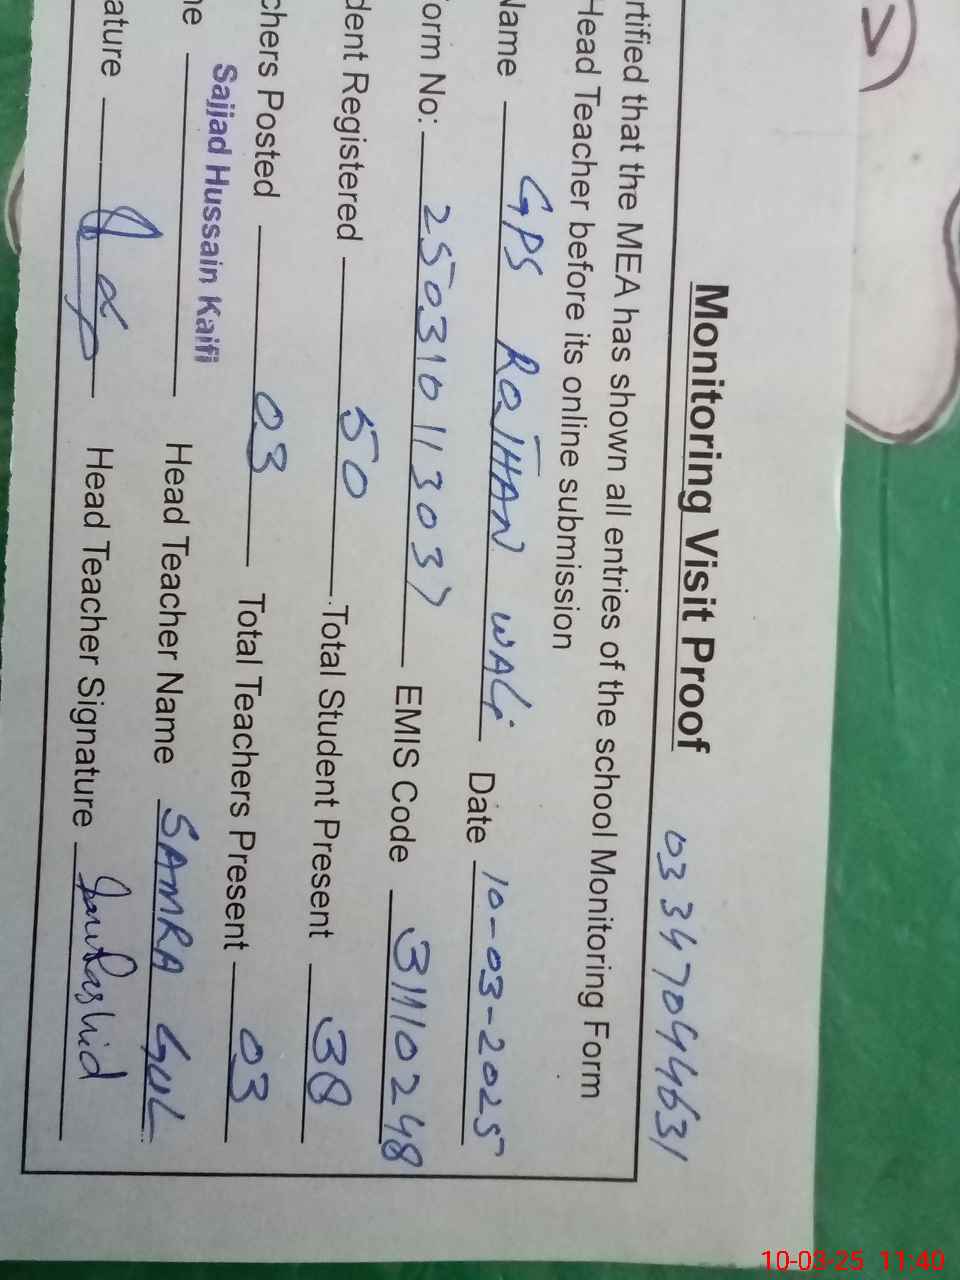 Monitoring Visit Proof 03347094631
rtified that the MEA has shown all entries of the school Monitoring Form
Head Teacher before its online submission
Name GPS ROJHAN WALI Date 10-03-2025
orm No: 250310113037 EMIS Code 31110248
dent Registered 50 Total Student Present 38
chers Posted 03 Total Teachers Present 03
Sajjad Hussain Kaifi
ne Head Teacher Name SAMRA GUL
ature Head Teacher Signature
10-03-25 11:40